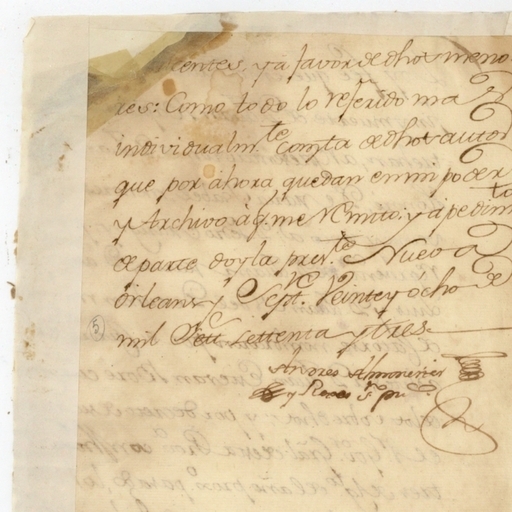 centes, y a favor de dhos meno
res: Como todo lo referido mas
individualmte consta de dhos autos
que por ahora quedan en mi poder
y Archivo à q.e me Remito: y a pedimto
de parte doy la preste Nueva
Orleans y Sepre Veinte y ôcho de
mil Setts Settenta y tres
Andres Almonester
y Roxas
5